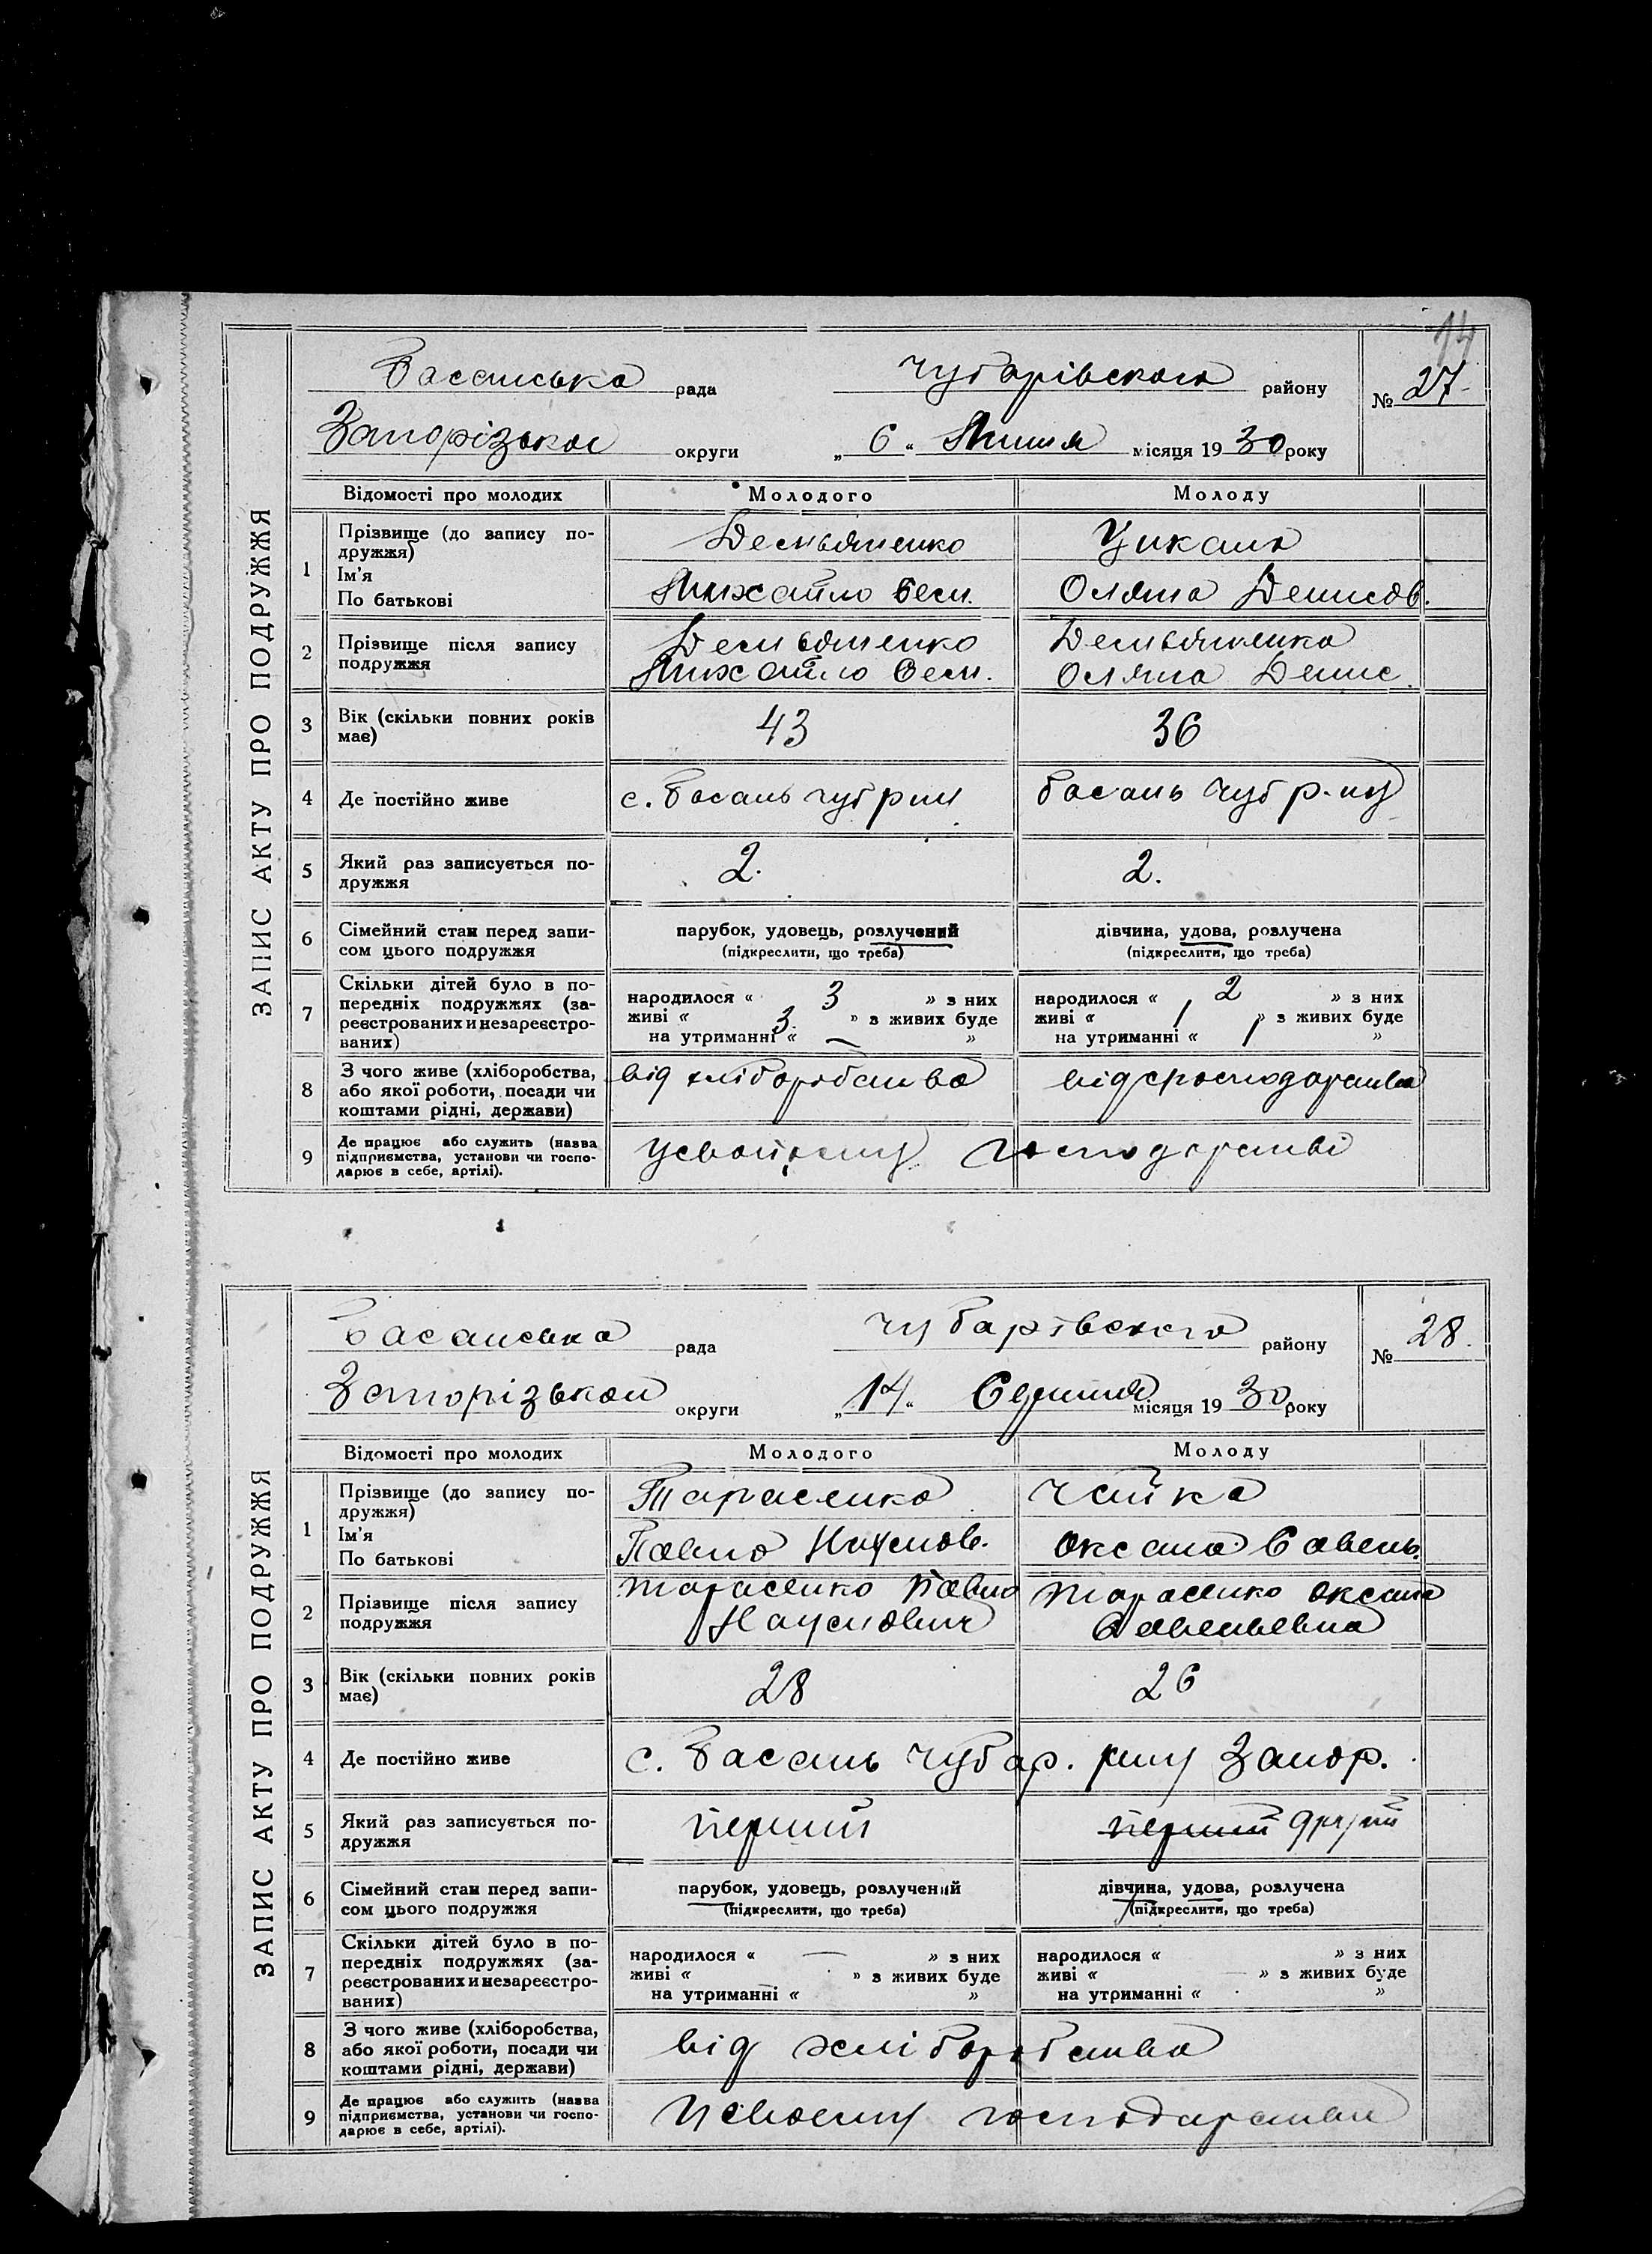 14
ЗАПИС АКТУ ПРО ПОДРУЖЖЯ
Басанська рада Чубарівского району № 27
Запорізької округи „ 6 “ Липня місяця 1930 року
Відомості про молодих Молодого Молоду
1 Прізвище (до запису по-
дружжя)
Ім'я
По батькові
Демьяненко Цикало
Михайло Сем. Оляна Денисов.
2 Прізвище після запису
подружжя
Демьяненко Демьяненко
Михайло Сем. Оляна Денис.
3 Вік (скільки повних років
має)
43 36
4 Де постійно живе с. Басань Чуб р-ну Басань Чуб р-ну
5 Який раз записується по-
дружжя
2. 2.
6 Сімейний стан перед запи-
сом цього подружжя
парубок, удовець, розлучений дівчина, удова, розлучена
(підкреслити, що треба) (підкреслити, що треба)
7 Скільки дітей було в по-
передніх подружжях (за-
реєстрованих и незареєстро-
ваних)
народилося « 3 » з них народилося « 2 » з них
живі « 3. » з живих буде живі « 1 » з живих буде
на утриманні « — » на утриманні « 1 »
8 З чого живе (хліборобства,
або якої роботи, посади чи
коштами рідні, держави)
від хліборобства від господарства
9 Де працює або служить (назва
підприємства, установи чи госпо-
дарює в себе, артілі).
у свойому господарстві
ЗАПИС АКТУ ПРО ПОДРУЖЖЯ
Басанська рада Чубарівского району № 28.
Запорізької округи „ 14 “ Серпня місяця 1930 року
Відомості про молодих Молодого Молоду
1 Прізвище (до запису по-
дружжя)
Ім'я
По батькові
Тарасенко Чайка
Павло Наумов. Оксана Савель.
2 Прізвище після запису
подружжя
Тарасенко Павло Тарасенко Оксана
Наумович Савельевна
3 Вік (скільки повних років
має)
28 26
4 Де постійно живе с. Басань Чубар. р-ну Запор.
5 Який раз записується по-
дружжя
перший перший другий
6 Сімейний стан перед запи-
сом цього подружжя
парубок, удовець, розлучений дівчина, удова, розлучена
(підкреслити, що треба) (підкреслити, що треба)
7 Скільки дітей було в по-
передніх подружжях (за-
реєстрованих и незареєстро-
ваних)
народилося « — » з них народилося « » з них
живі « » з живих буде живі « — » з живих буде
на утриманні « » на утриманні « »
8 З чого живе (хліборобства,
або якої роботи, посади чи
коштами рідні, держави)
від хліборобства
9 Де працює або служить (назва
підприємства, установи чи госпо-
дарює в себе, артілі).
у своєму господарстви